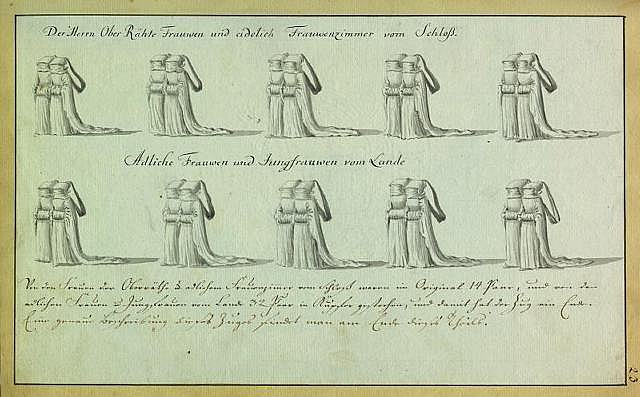 Der Herrn Ober Rähte Frauwen und eidelich Frauwenzimmer vom Schloß.
Adliche Frauwen und Jungfrauwen vom Lande
Von den Frauen der Oberräthe & adlichem Frauenzimer vom Schloß waren im Original 14 Paar, und von den
adlichen Frauen & Jungfrauen vom Lande 32 Paar in Kupfer gestochen, und damit hat der Zug ein Ende.
Eine genaue Beschreibung dieses Zuges findet man am Ende dieses Theils.
23